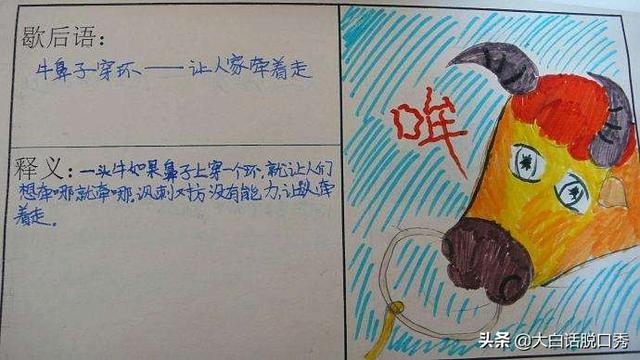 歇后语:
牛鼻子穿环——让人家牵着走
释义:一头牛如果鼻子上穿一个环,就让人们
想牵哪就牵哪,讽刺对方没有能力,让人牵
着走。
哞
头条 @大白话脱口秀